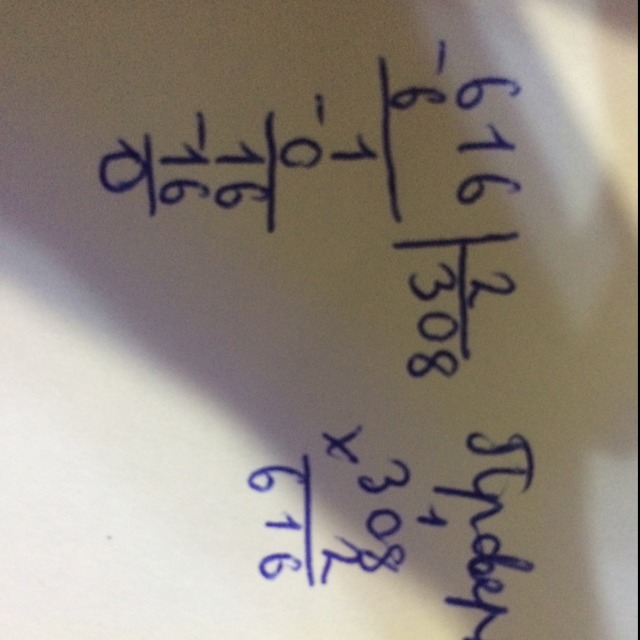 616 | 2
-6 | 308
1
-0
16
-16
0
Провер
1
× 308
2
616